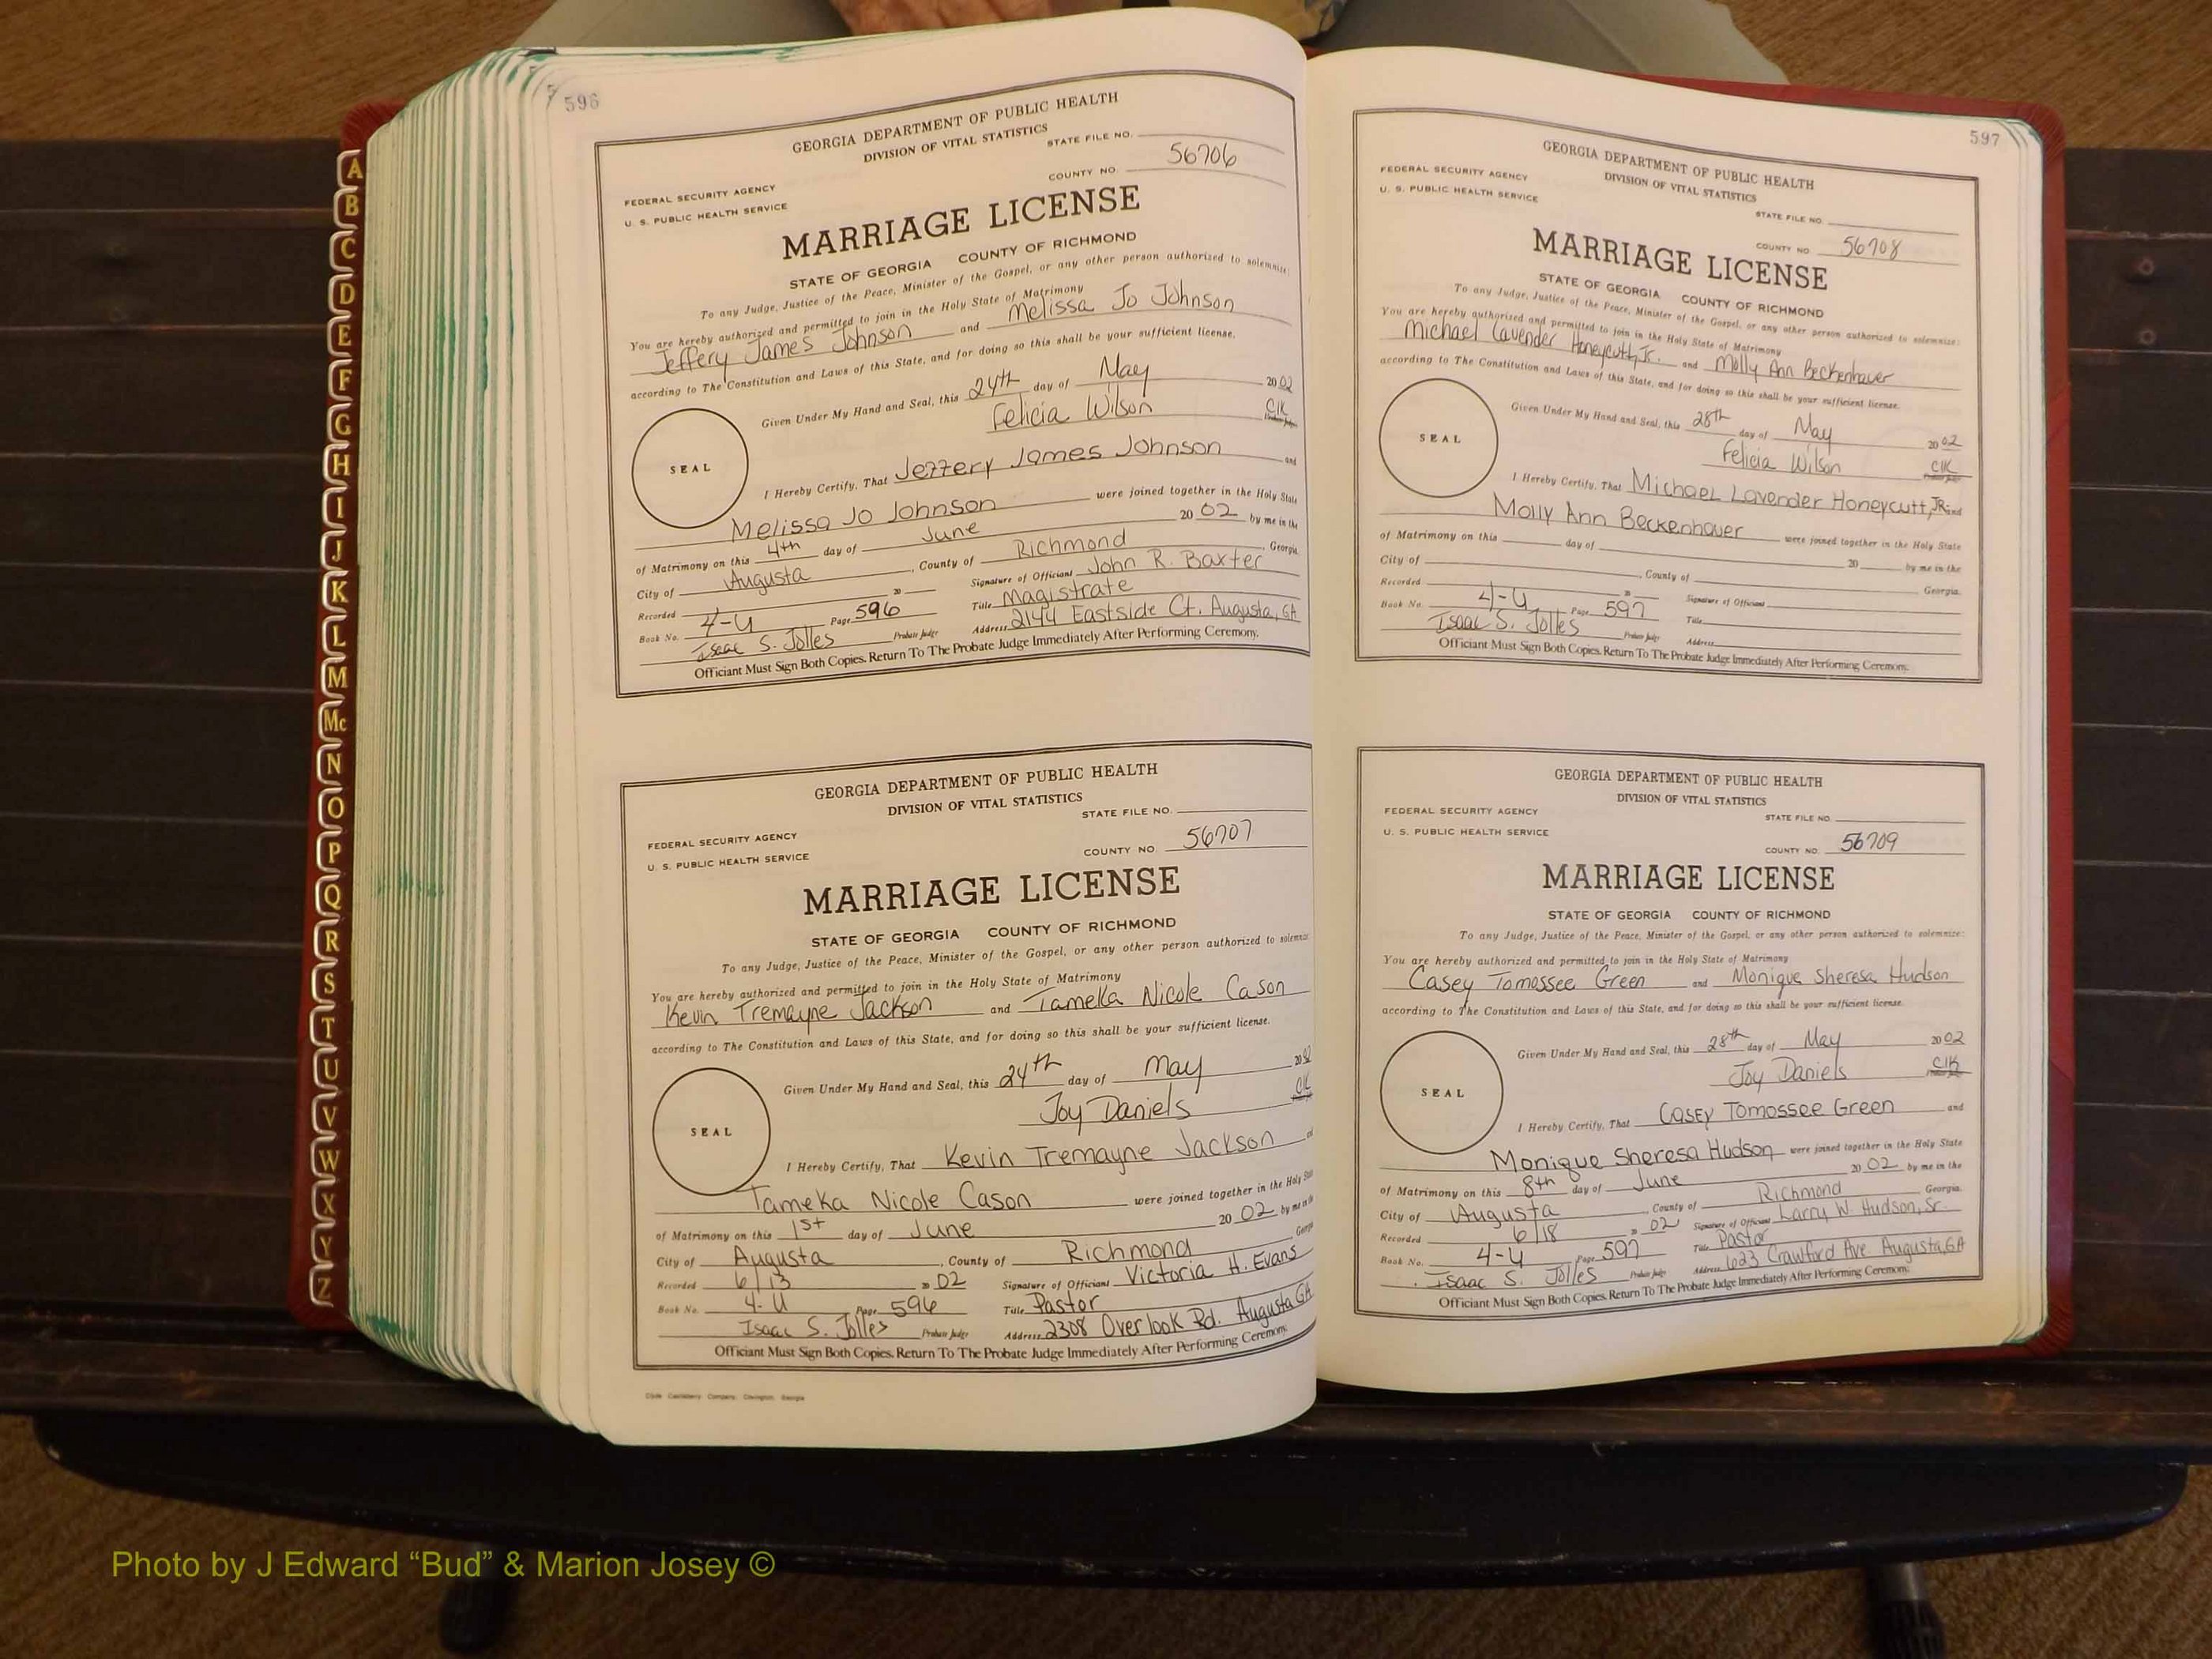 A
B
C
D
E
F
G
H
I
J
K
L
M
Mc
N
O
P
Q
R
S
T
U
V
W
X
Y
Z
596
GEORGIA DEPARTMENT OF PUBLIC HEALTH
DIVISION OF VITAL STATISTICS
STATE FILE NO.
FEDERAL SECURITY AGENCY
U. S. PUBLIC HEALTH SERVICE
COUNTY NO. 56706
MARRIAGE LICENSE
STATE OF GEORGIA COUNTY OF RICHMOND
To any Judge, Justice of the Peace, Minister of the Gospel, or any other person authorized to solemnize:
You are hereby authorized and permitted to join in the Holy State of Matrimony
Jeffery James Johnson and Melissa Jo Johnson
according to The Constitution and Laws of this State, and for doing so this shall be your sufficient license.
Given Under My Hand and Seal, this 24th day of May 2002
Felicia Wilson Clk
SEAL
I Hereby Certify, That Jeffery James Johnson and
Melissa Jo Johnson were joined together in the Holy State
of Matrimony on this 4th day of June 20 02 by me in the
City of Augusta, County of Richmond, Georgia.
Recorded 20 Signature of Official John R. Baxter
Book No. 4-U Page 596 Title Magistrate
Isaac S. Jolles Probate Judge Address 2144 Eastside Ct. Augusta, GA
Officiant Must Sign Both Copies. Return To The Probate Judge Immediately After Performing Ceremony.
GEORGIA DEPARTMENT OF PUBLIC HEALTH
DIVISION OF VITAL STATISTICS
STATE FILE NO.
FEDERAL SECURITY AGENCY
U. S. PUBLIC HEALTH SERVICE
COUNTY NO. 56707
MARRIAGE LICENSE
STATE OF GEORGIA COUNTY OF RICHMOND
To any Judge, Justice of the Peace, Minister of the Gospel, or any other person authorized to solemnize
You are hereby authorized and permitted to join in the Holy State of Matrimony
Kevin Tremayne Jackson and Tameka Nicole Cason
according to The Constitution and Laws of this State, and for doing so this shall be your sufficient license.
Given Under My Hand and Seal, this 24th day of May 2002
Joy Daniels Clk
SEAL
I Hereby Certify, That Kevin Tremayne Jackson
Tameka Nicole Cason were joined together in the Holy
of Matrimony on this 1st day of June 20 02 by me in
City of Augusta, County of Richmond
Recorded 6/13 20 02 Signature of Official Victoria H. Evans
Book No. 4-U Page 596 Title Pastor
Isaac S. Jolles Probate Judge Address 2308 Overlook Rd. Augusta GA
Officiant Must Sign Both Copies. Return To The Probate Judge Immediately After Performing Ceremony.
Clyde Castleberry Company, Covington, Georgia
597
GEORGIA DEPARTMENT OF PUBLIC HEALTH
DIVISION OF VITAL STATISTICS
FEDERAL SECURITY AGENCY
U. S. PUBLIC HEALTH SERVICE
STATE FILE NO.
COUNTY NO. 56708
MARRIAGE LICENSE
STATE OF GEORGIA COUNTY OF RICHMOND
To any Judge, Justice of the Peace, Minister of the Gospel, or any other person authorized to solemnize:
You are hereby authorized and permitted to join in the Holy State of Matrimony
Michael Lavender Honeycutt, Jr. and Molly Ann Beckenhauer
according to The Constitution and Laws of this State, and for doing so this shall be your sufficient license.
Given Under My Hand and Seal, this 28th day of May 2002
Felicia Wilson Clk
SEAL
I Hereby Certify, That Michael Lavender Honeycutt, JR. and
Molly Ann Beckenhauer were joined together in the Holy State
of Matrimony on this day of 20 by me in the
City of , County of Georgia.
Recorded 20 Signature of Official
Book No. 4-U Page 597 Title
Isaac S. Jolles Probate Judge Address
Officiant Must Sign Both Copies. Return To The Probate Judge Immediately After Performing Ceremony.
GEORGIA DEPARTMENT OF PUBLIC HEALTH
DIVISION OF VITAL STATISTICS
FEDERAL SECURITY AGENCY
STATE FILE NO.
U. S. PUBLIC HEALTH SERVICE
COUNTY NO. 56709
MARRIAGE LICENSE
STATE OF GEORGIA COUNTY OF RICHMOND
To any Judge, Justice of the Peace, Minister of the Gospel, or any other person authorized to solemnize:
You are hereby authorized and permitted to join in the Holy State of Matrimony
Casey Tomossee Green and Monique Sheresa Hudson
according to The Constitution and Laws of this State, and for doing so this shall be your sufficient license.
Given Under My Hand and Seal, this 28th day of May 2002
Joy Daniels Clk
SEAL
I Hereby Certify, That Casey Tomossee Green and
Monique Sheresa Hudson were joined together in the Holy State
of Matrimony on this 8th day of June 20 02 by me in the
City of Augusta, County of Richmond Georgia.
Recorded 6/18 20 02 Signature of Official Larry W. Hudson, Sr.
Book No. 4-U Page 597 Title Pastor
Isaac S. Jolles Probate Judge Address 1623 Crawford Ave. Augusta, GA
Officiant Must Sign Both Copies. Return To The Probate Judge Immediately After Performing Ceremony.
Photo by J Edward “Bud” & Marion Josey ©